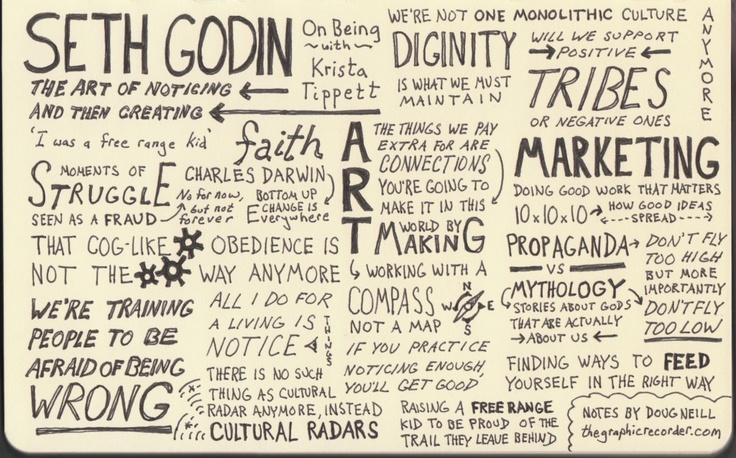 SETH GODIN
On Being
with
Krista
Tippett
THE ART OF NOTICING
AND THEN CREATING
WE'RE NOT ONE MONOLITHIC CULTURE
ANYMORE
DIGINITY
IS WHAT WE MUST
MAINTAIN
WILL WE SUPPORT
POSITIVE
TRIBES
OR NEGATIVE ONES
'I was a free range kid'
faith
ART
THE THINGS WE PAY
EXTRA FOR ARE
CONNECTIONS
YOU'RE GOING TO
MAKE IT IN THIS
WORLD BY
MAKING
MARKETING
DOING GOOD WORK THAT MATTERS
10x10x10
HOW GOOD IDEAS
SPREAD
MOMENTS OF
STRUGGLE
SEEN AS A FRAUD
No for now,
but not
forever
CHARLES DARWIN
BOTTOM UP
CHANGE IS
Everywhere
THAT COG-LIKE OBEDIENCE IS
NOT THE WAY ANYMORE
WORKING WITH A
COMPASS
NOT A MAP
N
W E
S
PROPAGANDA
VS
MYTHOLOGY
STORIES ABOUT GODS
THAT ARE ACTUALLY
ABOUT US
DON'T FLY
TOO HIGH
BUT MORE
IMPORTANTLY
DON'T FLY
TOO LOW
WE'RE TRAINING
PEOPLE TO BE
AFRAID OF BEING
WRONG
ALL I DO FOR
A LIVING IS
NOTICE
THINGS
IF YOU PRACTICE
NOTICING ENOUGH,
YOU'LL GET GOOD
THERE IS NO SUCH
THING AS CULTURAL
RADAR ANYMORE, INSTEAD
CULTURAL RADARS
RAISING A FREE RANGE
KID TO BE PROUD OF THE
TRAIL THEY LEAVE BEHIND
FINDING WAYS TO FEED
YOURSELF IN THE RIGHT WAY
NOTES BY DOUG NEILL
thegraphicrecorder.com